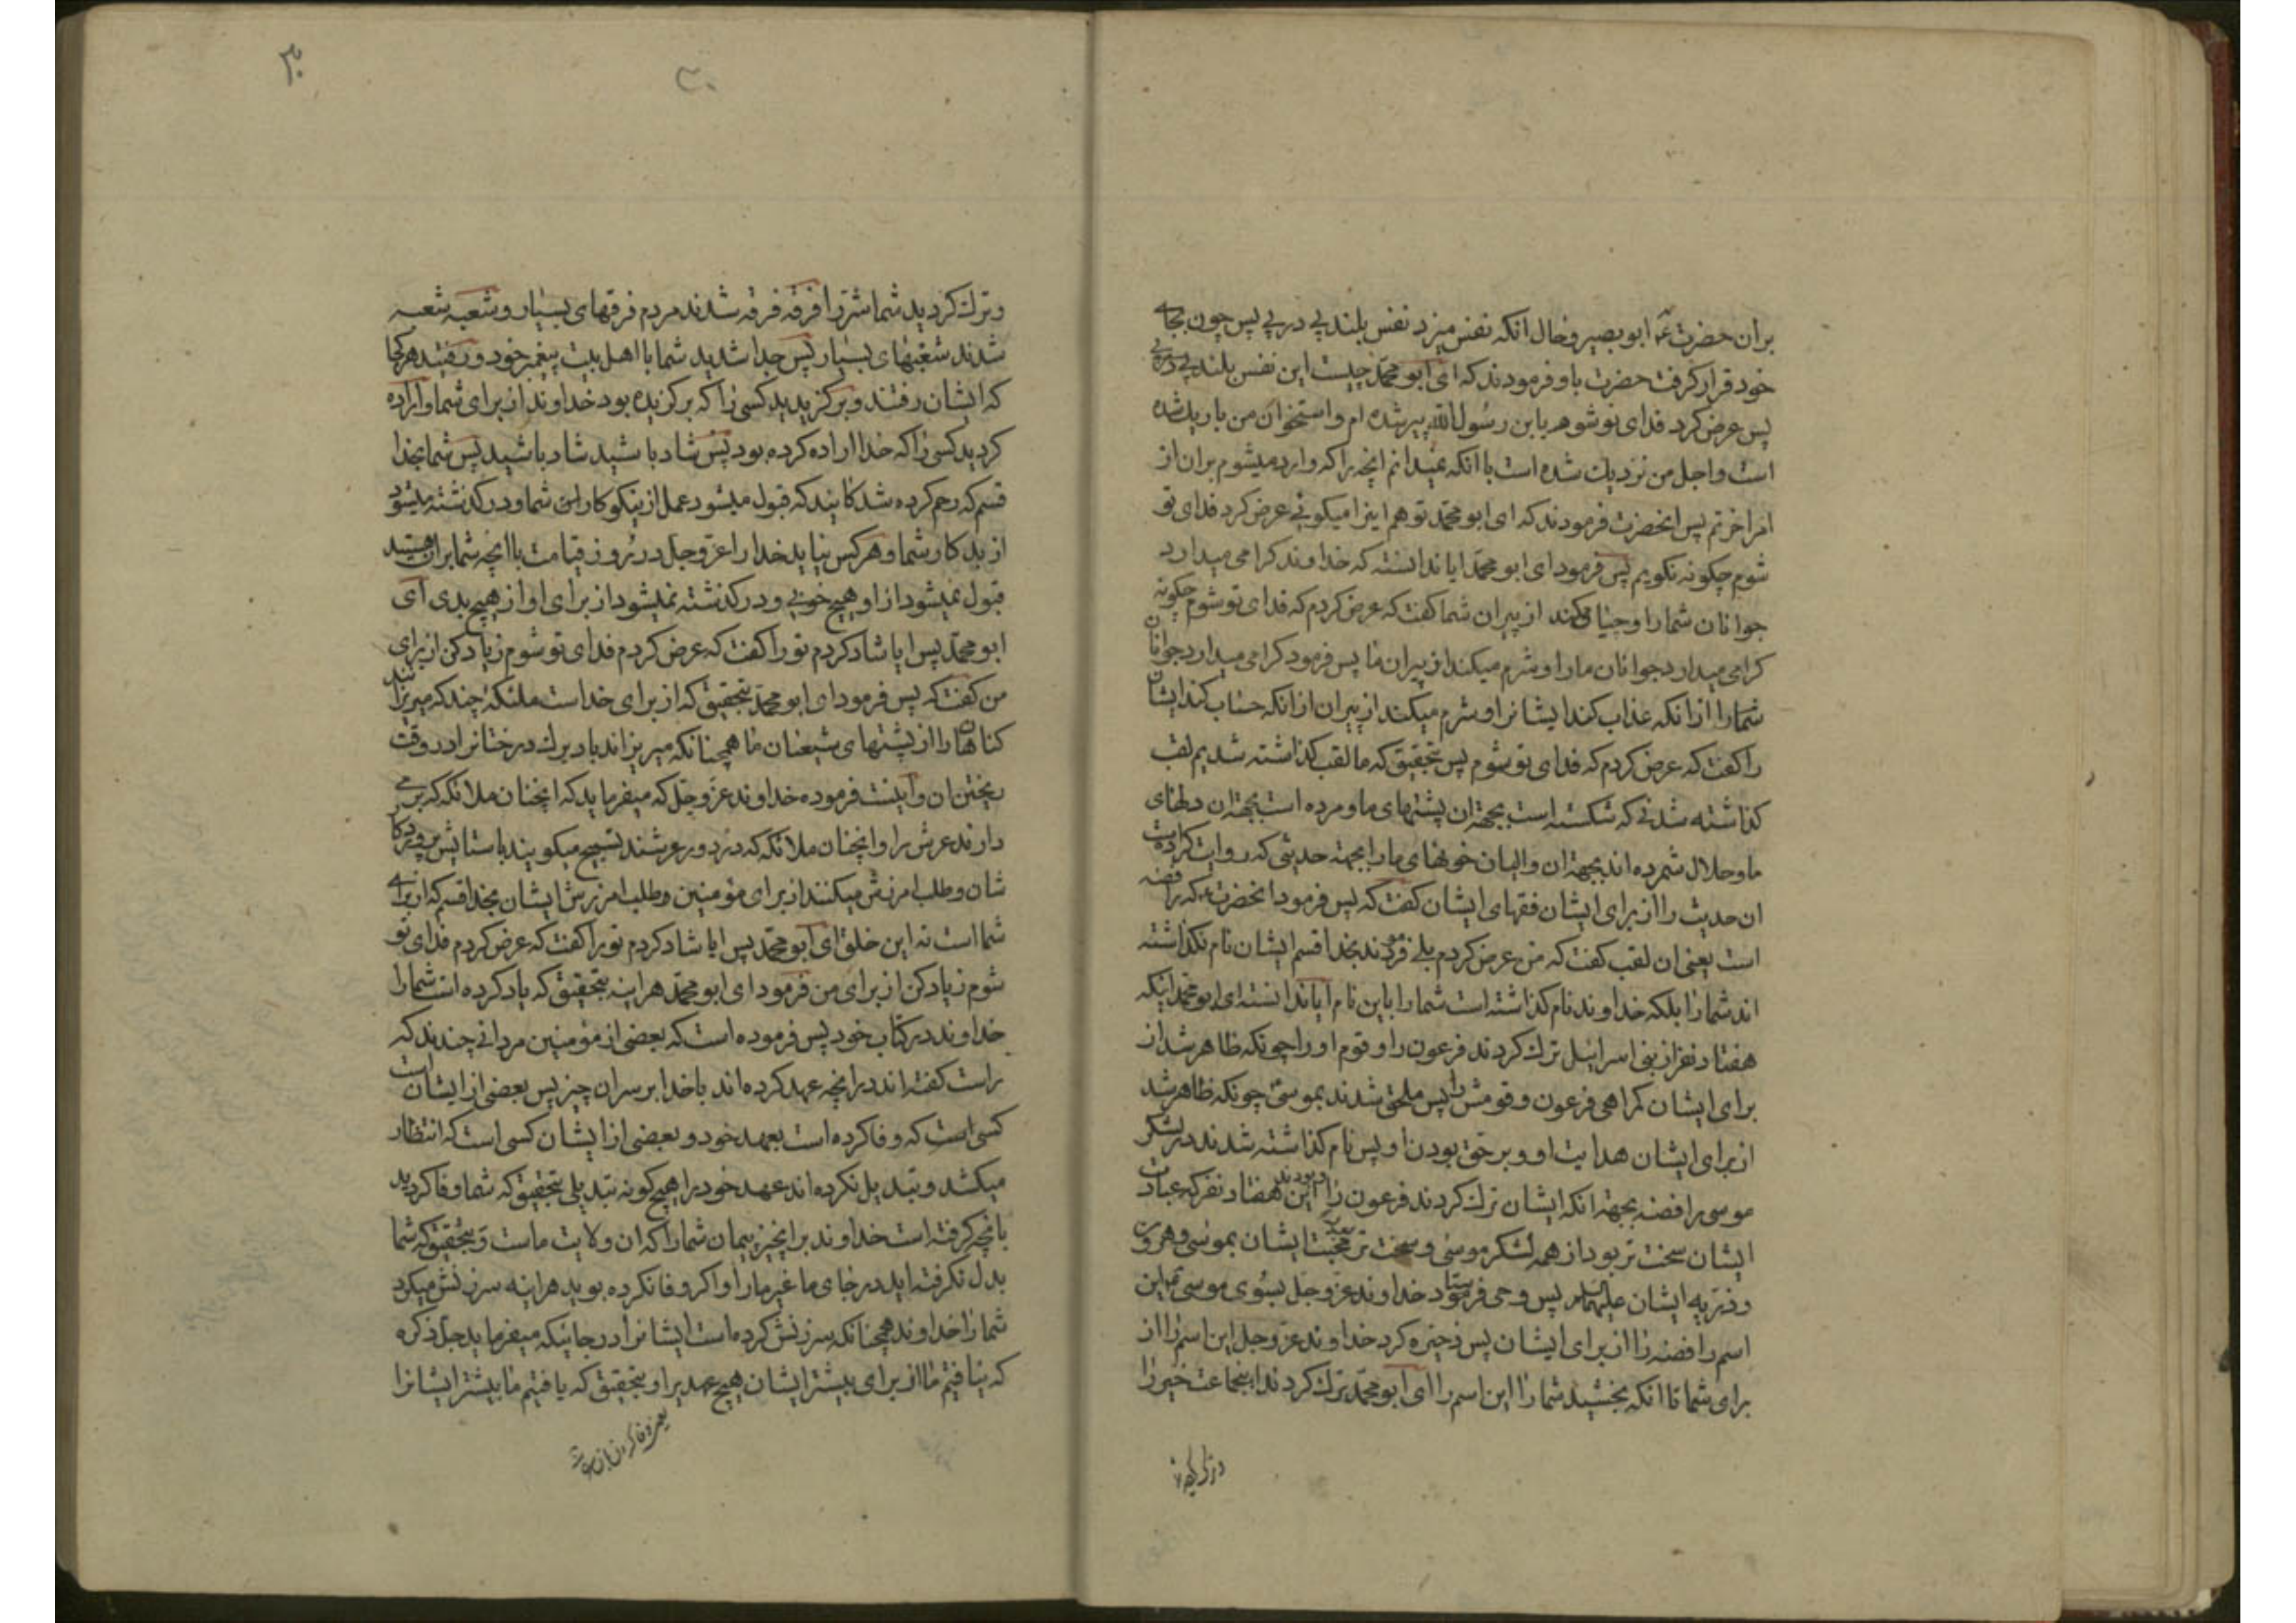 بران حضرت ع ابو بصیر و حال انکه نفس میزد نفس بلند پی در پی پس چون بجای
خود قرار کرفت حضرت باو فرمودند که ای ابو محمد چیست این نفس بلند پی در پی
پس عرض کرد فدای تو شوم یا بن رسول الله پیر شده ام و استخوان من باریك شده
است و اجل من نزدیك شده است با انکه نمیدانم انچه را که وارد میشوم بران از
امر اخرتم پس انحضرت فرمودند که ای ابو محمد تو هم اینرا میکوئی عرض کرد فدای تو
شوم چکونه نکویم پس فرمود ای ابو محمد ایا ندانسته که خداوند کرامی میدارد
جوانان شما را و حیا میکند از پیران شما کفت که عرض کردم که فدای تو شوم چکونه
کرامی میدارد جوانان ما را و شرم میکند از پیران ما پس فرمود کرامی میدارد جوانان
شما را از انکه عذاب کند ایشانرا و شرم میکند از پیران از انکه حساب کند ایشان
را کفت که عرض کردم که فدای تو شوم پس بتحقیق که ما لقب کذاشته شدیم لقب
کذاشته شدنی که شکسته است بجهة ان پشتهای ما و مرده است بجهة ان دلهای
ما و حلال شمرده اند بجهة ان والیان خونهای ما را بجهة حدیثی که روایت کرده است
ان حدیث را از برای ایشان فقهای ایشان کفت که پس فرمود انحضرت که رافضه
است یعنی ان لقب کفت که من عرض کردم بلی فرمودند بخدا قسم ایشان نام نکذاشته
اند شما را بلکه خداوند نام کذاشته است شما را باین نام ایا ندانسته ای ابو محمد اینکه
هفتاد نفر از بنی اسرائیل ترك کردند فرعون را و قوم او را چونکه ظاهر شد از
برای ایشان کمراهی فرعون و قومش را پس ملحق شدند بموسی چونکه ظاهر شد
از برای ایشان هدایت او و بر حق بودن او پس نام کذاشته شدند در لشکر
موسی رافضه بجهة انکه ایشان ترك کردند فرعون را و بودند این هفتاد نفر که عبادت
ایشان سخت تر بود از همه لشکر موسی و سخت تر بود محبت ایشان بموسی و هرون
و ذریه ایشان علیهما السلام پس وحی فرستاد خداوند عز و جل بسوی موسی که این
اسم رافضه را از برای ایشان پس ذخیره کرد خداوند عز و جل این اسم را از
برای شما تا انکه بخشید شما را این اسم را ای ابو محمد ترك کردند اینجماعت خیر را
و ترك کردید شما شر را فرقه فرقه شدند مردم فرقهای بسیار و شعبه شعبه
شدند شعبهای بسیار پس جدا شدید شما با اهل بیت پیغمبر خود و رفتید هر کجا
که ایشان رفتند و برکزیدید کسی را که برکزیده بود خداوند از برای شما و اراده
کردید کسی را که خدا اراده کرده بود پس شاد باشید شاد باشید پس شما بخدا
قسم که رحم کرده شدکانید که قبول میشود عمل از نیکوکاران شما و در کذشته میشود
از بدکار شما و هر کس نیاید خدا را عز و جل در روز قیامت با انچه شما بران هستید
قبول نمیشود از او هیچ خوبی و در کذشته نمیشود از برای او از هیچ بدی ای
ابو محمد پس ایا شاد کردم تو را کفت که عرض کردم فدای تو شوم زیاد کن از برای
من کفت که پس فرمود ای ابو محمد بتحقیق که از برای خداست ملئکه چند که میریزانند
کناهان را از پشتهای شیعیان ما همچنانکه میریزاند باد برك درختانرا در وقت
ریختن ان و اینست فرموده خداوند عز و جل که میفرماید که انچنان ملائکه که بر می
دارند عرش را و انچنان ملائکه که در دور عرشند تسبیح میکویند با ستایش پروردکار
شان و طلب امرزش میکنند از برای مؤمنین و طلب امرزش ایشان بخدا قسم که از برای
شما است نه این خلق ای ابو محمد پس ایا شاد کردم تو را کفت که عرض کردم فدای تو
شوم زیاد کن از برای من فرمود ای ابو محمد هراینه بتحقیق که یاد کرده است شما را
خداوند در کتاب خود پس فرموده است که بعضی از مؤمنین مردانی چندند که
راست کفته اند در انچه عهد کرده اند با خدا بر سر ان چیز پس بعضی از ایشان است
کسی است که وفا کرده است بعهد خود و بعضی از ایشان کسی است که انتظار
میکشد و تبدیل نکرده اند عهد خود را هیچ کونه تبدیلی بتحقیق که شما وفا کردید
بانچه کرفته است خداوند بر انچیز پیمان شما را که ان ولایت ماست و بتحقیق که شما
بدل نکرفته اید در جای ما غیر ما را و اکر وفا نکرده بودید هراینه سرزنش میکرد
شما را خداوند همچنانکه سرزنش کرده است ایشانرا در جائیکه میفرماید جل ذکره
که نیافتیم ما از برای بیشتر ایشان هیچ عهدیرا و بتحقیق که یافتیم ما بیشتر ایشانرا